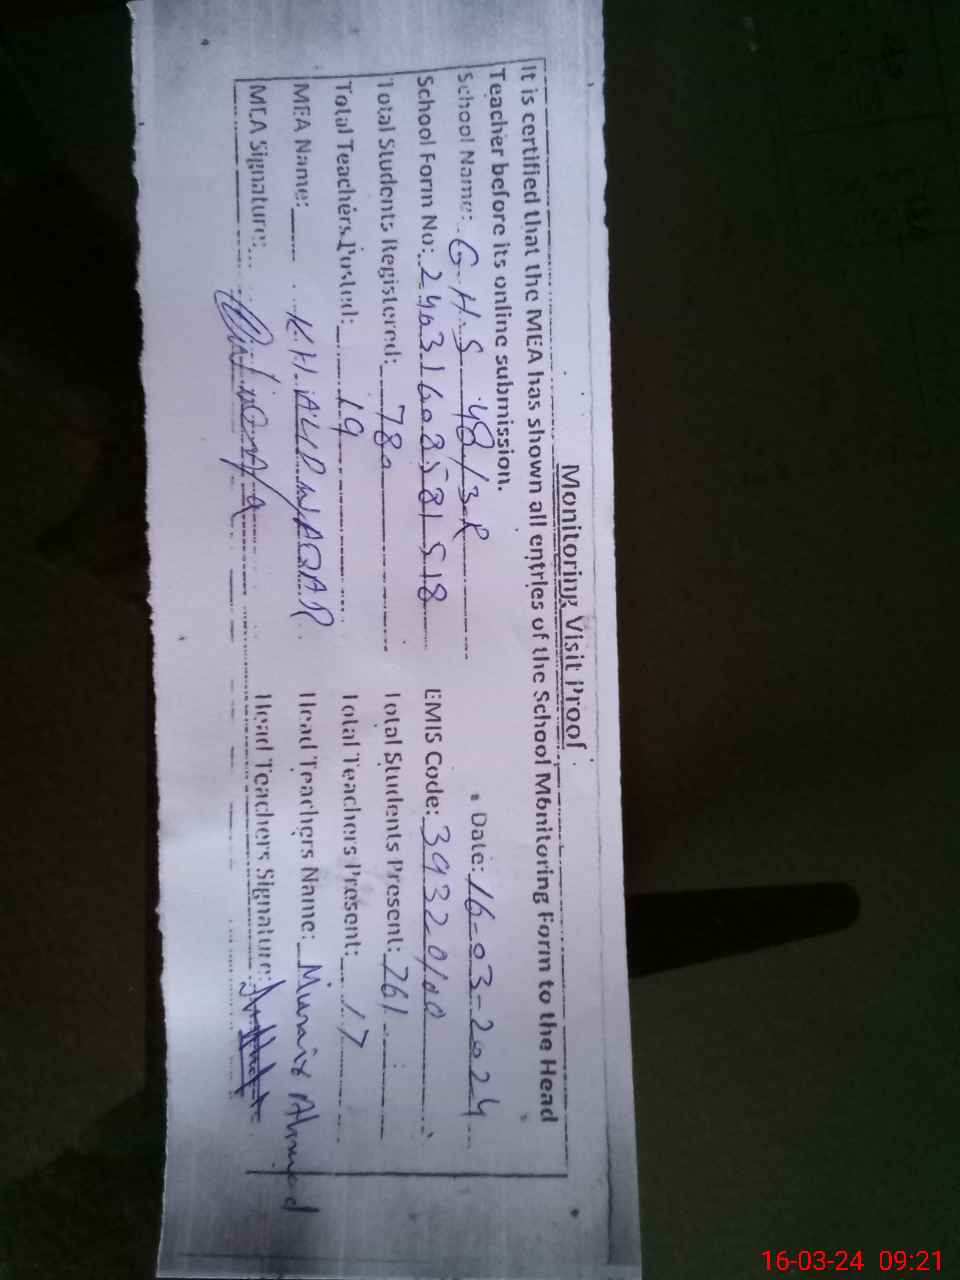 Monitoring Visit Proof
It is certified that the MEA has shown all entries of the School Monitoring Form to the Head
Teacher before its online submission.
School Name: G.H.S 48/3-R Date: 16-03-2024
School Form No: 24031603581518 EMIS Code: 39320100
Total Students Registered: 780 Total Students Present: 761
Total Teachers Posted: 19 Total Teachers Present: 17
MEA Name: KHALID WAQAR Head Teachers Name: Munir Ahmed
MEA Signature: Head Teachers Signature:
16-03-24 09:21